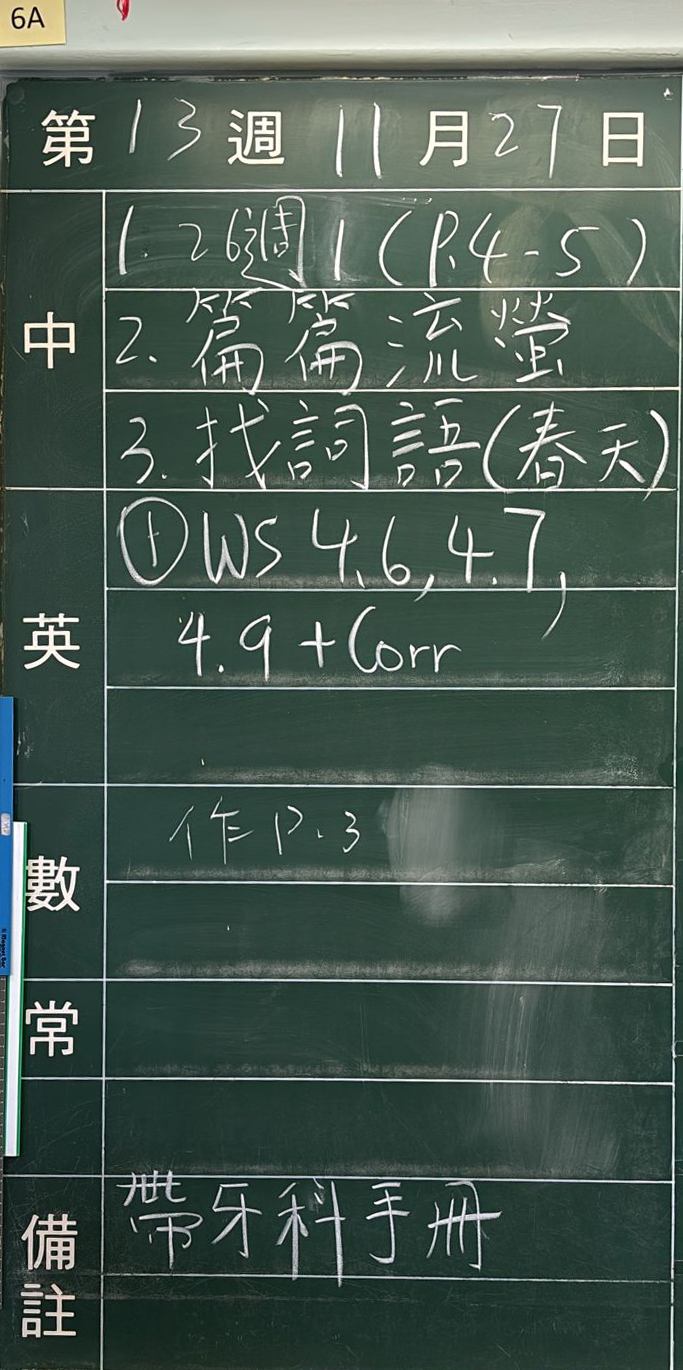 6A
第13週11月27日
中
1. 26週1(P.4-5)
2. 篇篇流螢
3. 找詞語(春天)
英
① WS 4.6, 4.7,
4.9 + Corr
數
作 P.3
常
備註
帶牙科手冊